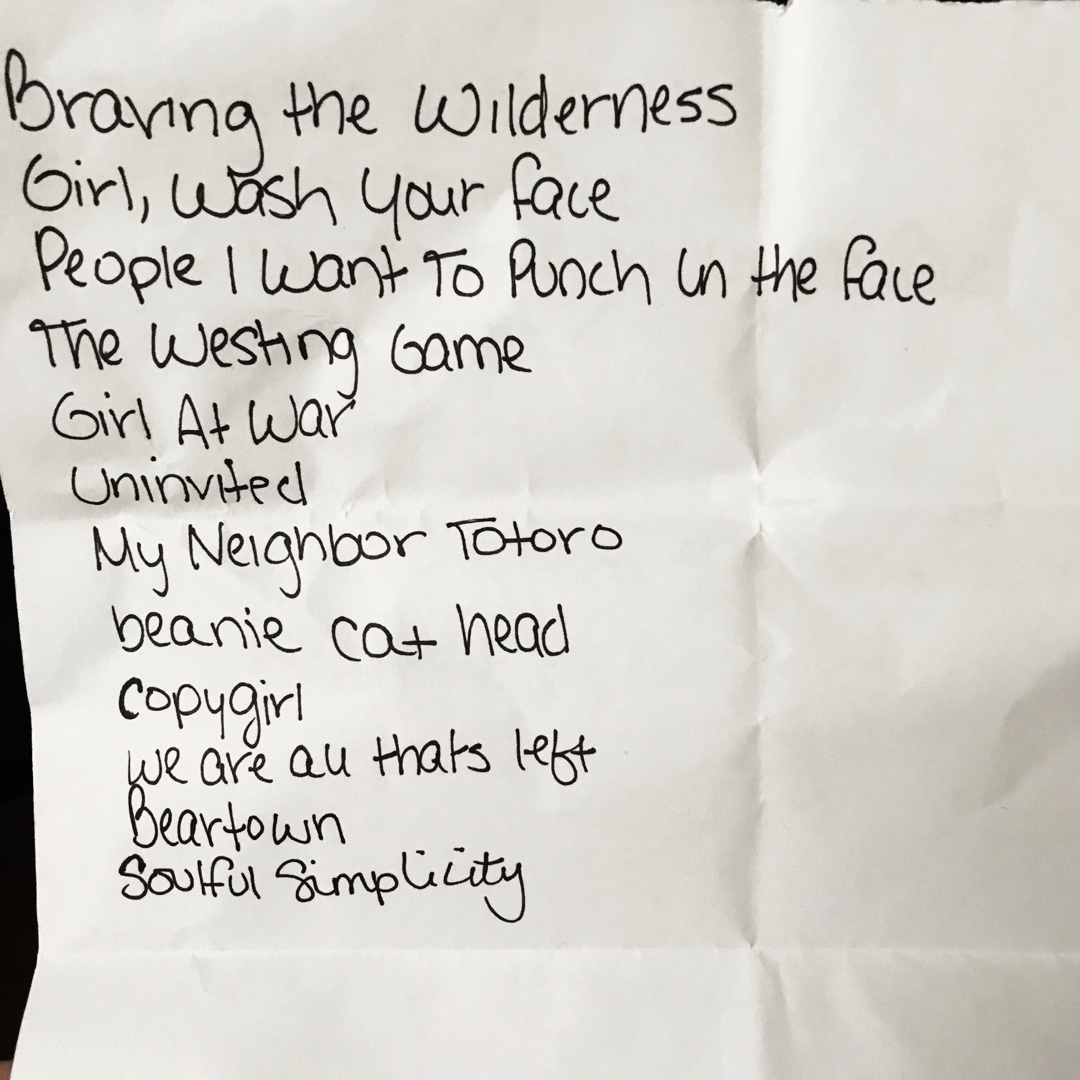 Braving the Wilderness
Girl, Wash Your Face
People I Want To Punch in the Face
The Westing Game
Girl At War
Uninvited
My Neighbor Totoro
beanie cat head
copygirl
we are all thats left
Beartown
Soulful Simplicity